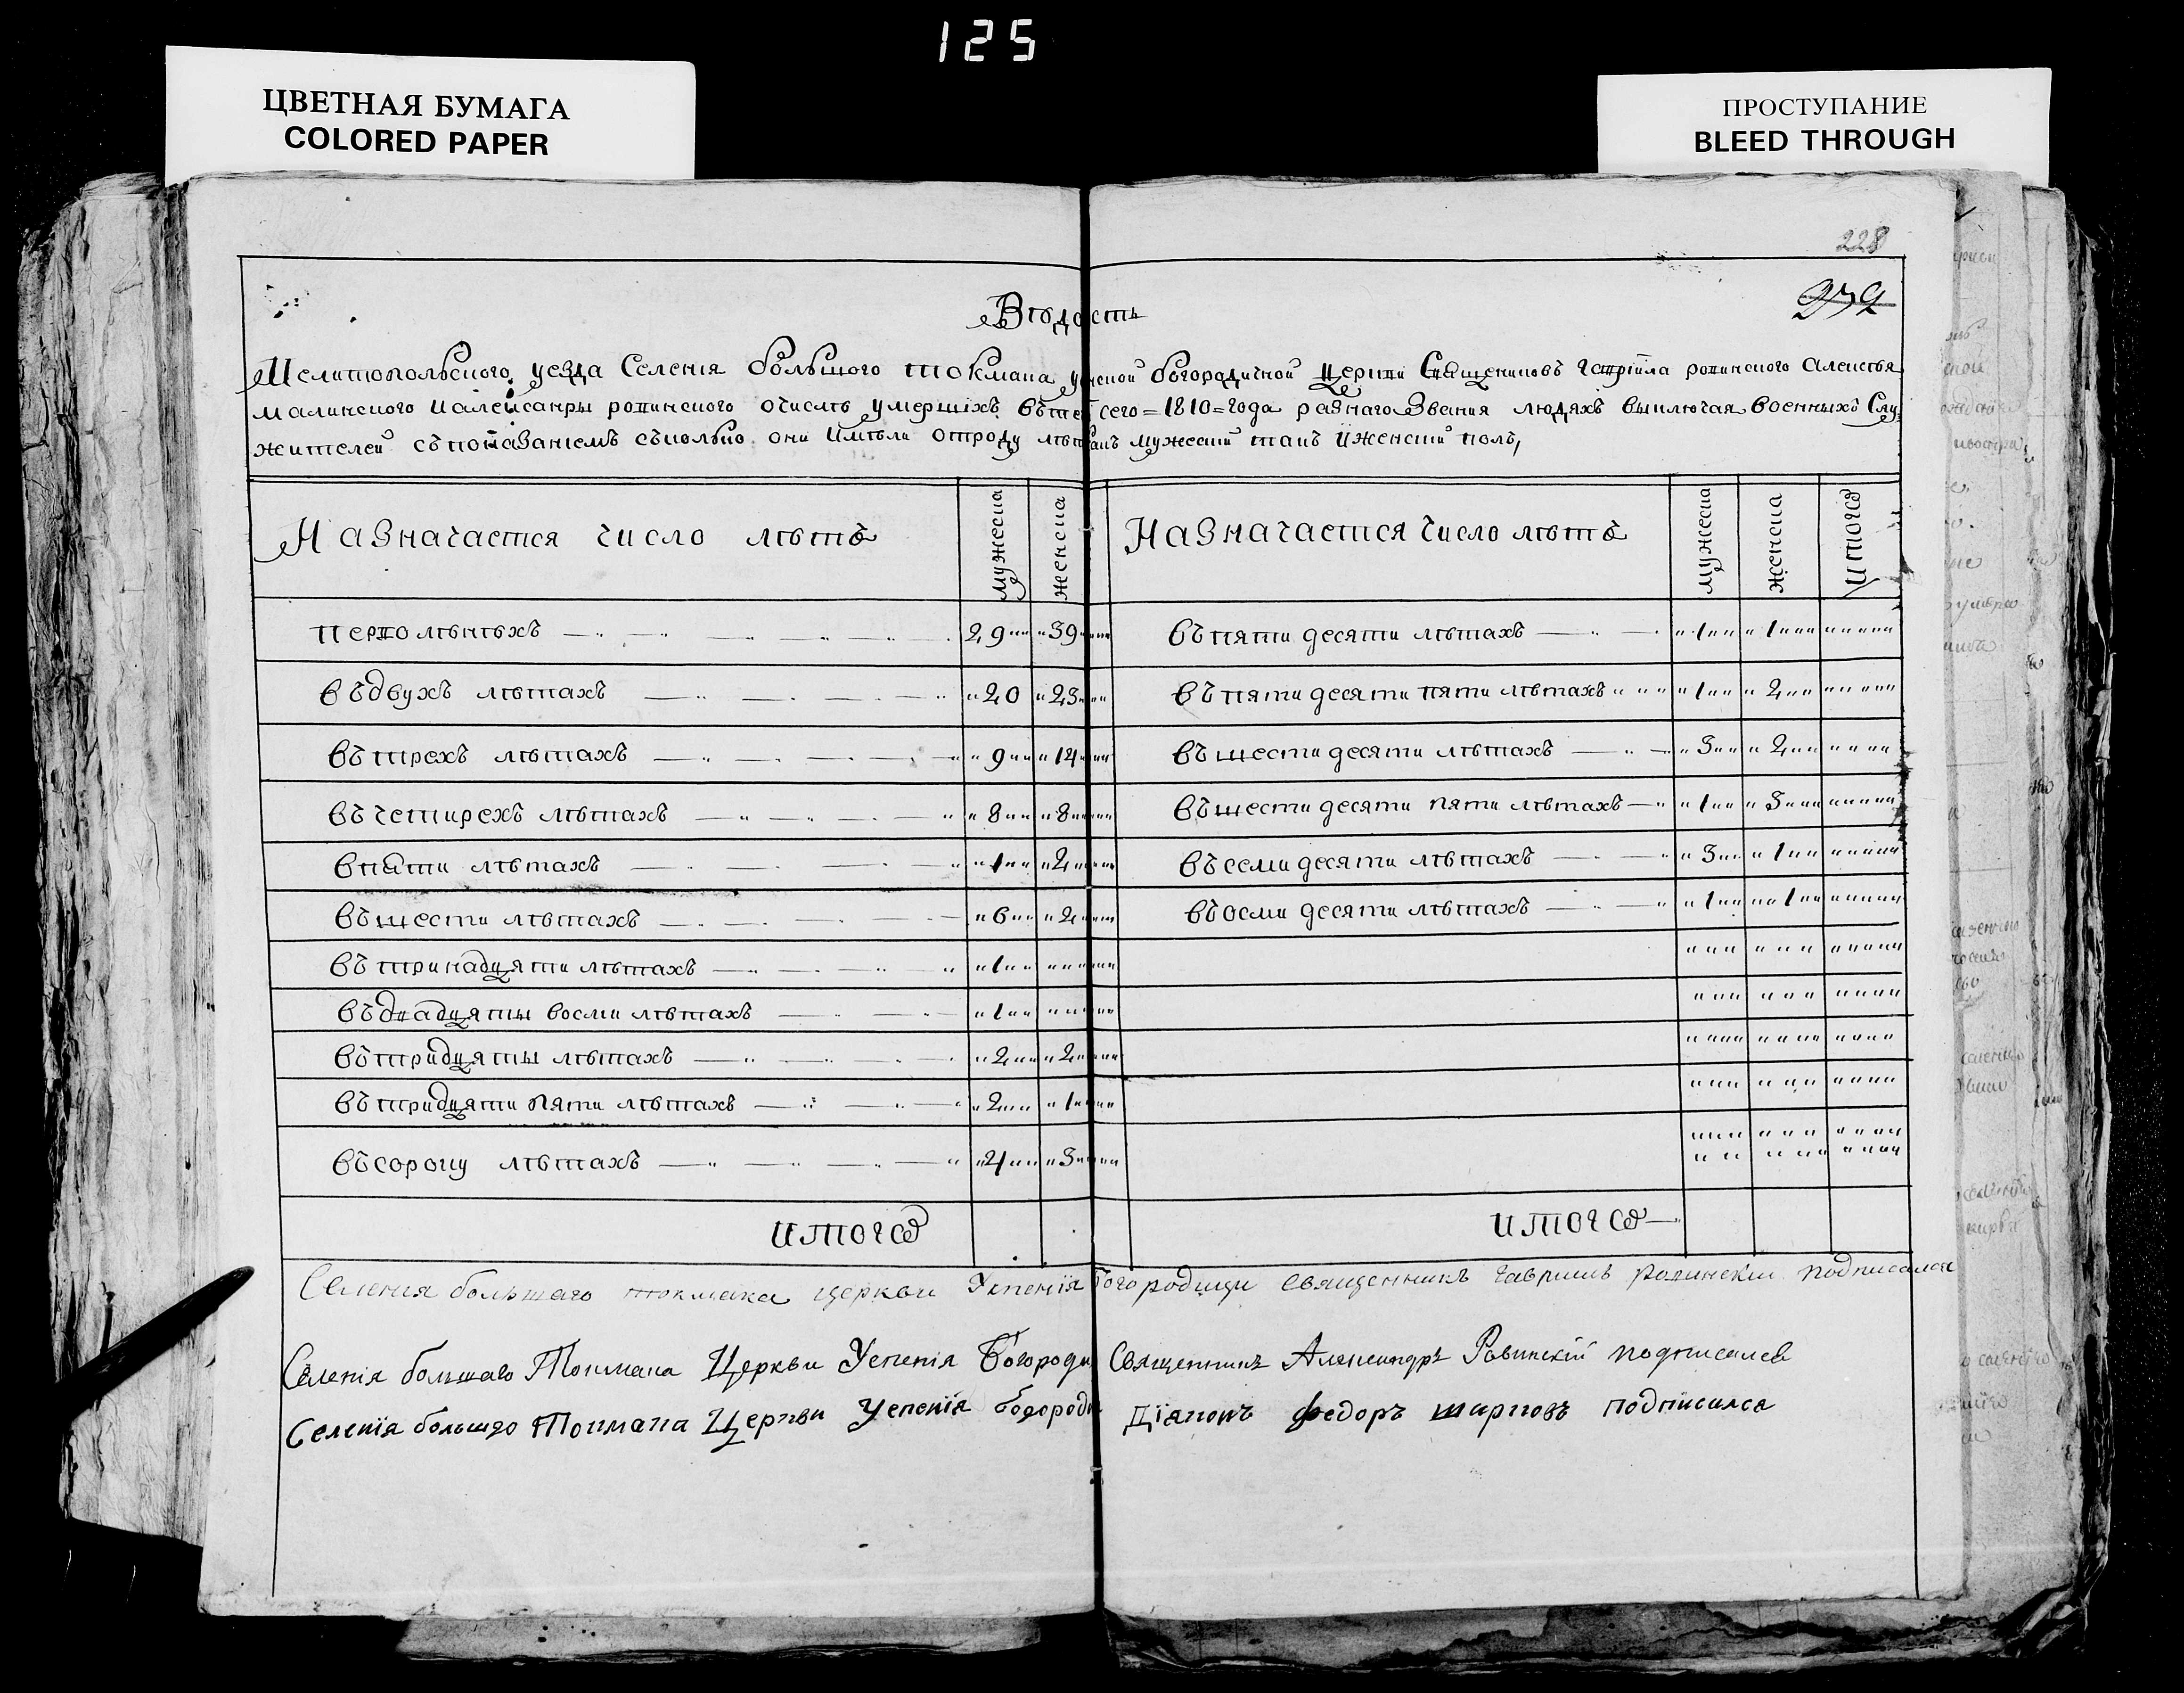 125
ЦВЕТНАЯ БУМАГА
COLORED PAPER
ПРОСТУПАНИЕ
BLEED THROUGH
228
Вѣдость
Мелитопольского уезда Селенія большого токмака успеской богородичной церкви Священиковъ гавріила ровинского алексѣя
малинского иалександры ровинского очислѣ умершихъ въте сего=1810=года разнаго Звания людяхъ выключая военныхъ Слу
жителей съпоказаніемъ съколько они имѣли отроду лѣтъ какъ мужеский такъ иженский полъ,
Назначается число лѣтъ
мужеска
женска
Назначается число лѣтъ
мужеска
женска
Итого
перволѣнѣхъ 29 39
въдвухъ лѣтахъ 20 23
въ трехъ лѣтахъ 9 14
въ четирехъ лѣтахъ 8 8
впяти лѣтахъ 1 2
въ шести лѣтахъ 6 2
въ тринадцяти лѣтахъ 1
въдвадцяты восми лѣтахъ 1
въ тридцяты лѣтахъ 2 2
въ тридцяти пяти лѣтахъ 2 1
въ сороку лѣтахъ 4 3
итого
въ пяти десяти лѣтахъ 1 1
въ пяти десяти пяти лѣтахъ 1 2
въ шести десяти лѣтахъ 3 2
въ шести десяти пяти лѣтахъ 1 3
въ семи десяти лѣтахъ 3 1
въ осми десяти лѣтахъ 1 1
итого
Селения большаго токмака церкви Успенія Богородици священникъ гавриилъ ровинский подписался
Селенія большаго Токмака Церкви Успенія Богороди Священникъ Александръ Ровинскій подписался
Селенія большаго Токмака Церкви Успенія богороди Діяконъ федоръ марковъ подписался